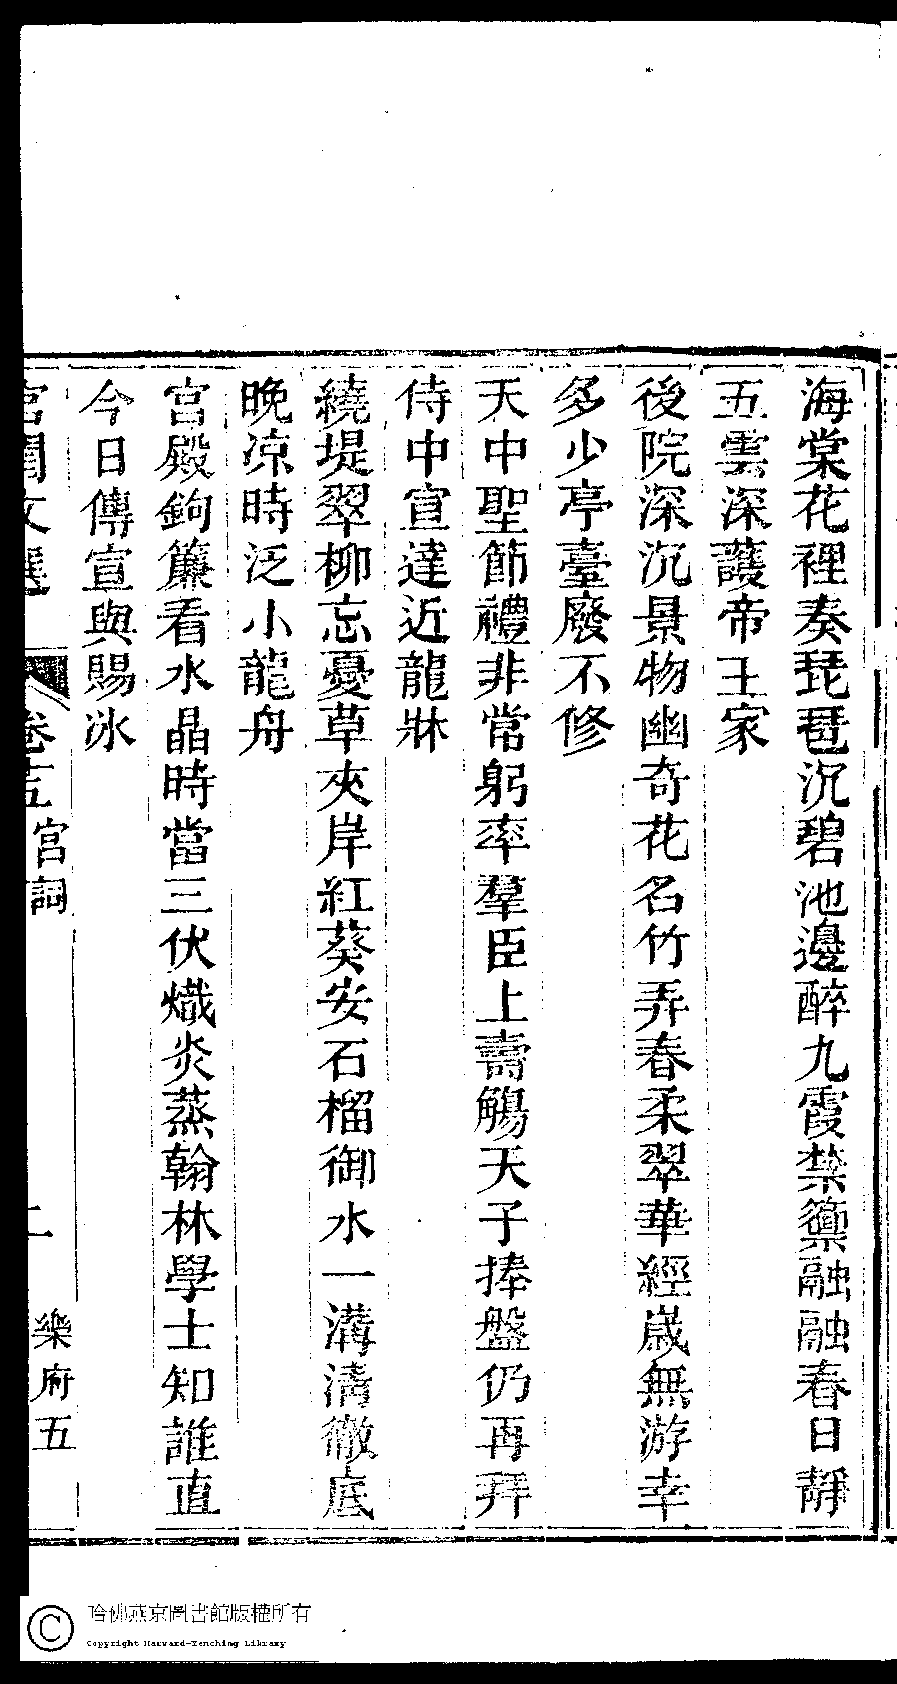 海棠花裡奏琵琶沉碧池邊醉九霞禁籞融融春日靜
五雲深護帝王家
後院深沉景物幽奇花名竹弄春柔翠華經歲無游幸
多少亭臺廢不修
天中聖節禮非常躬率羣臣上壽觴天子捧盤仍再拜
侍中宣達近龍牀
繞堤翠柳忘憂草夾岸紅葵安石榴御水一溝清徹底
晚凉時泛小龍舟
宮殿鉤簾看水晶時當三伏熾炎蒸翰林學士知誰直
今日傳宣與賜冰
宮閨文選 卷十五 宮詞 二 樂府五
哈佛燕京圖書館版權所有
Copyright Harvard-Yenching Library